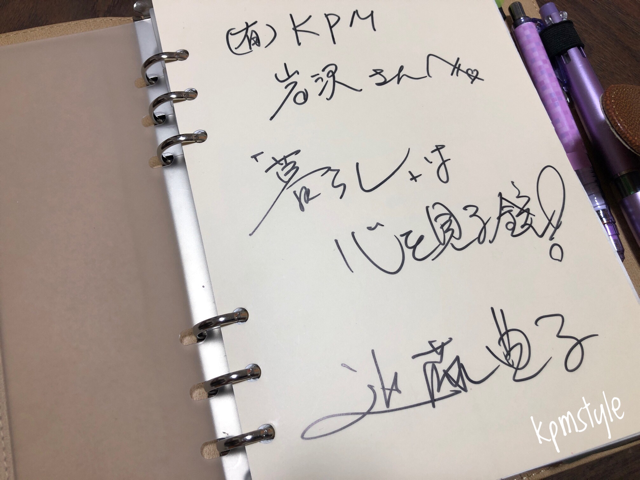 (有)KPM
岩沢さんへ♡
「暮らし」は
心を見る鏡!
近藤典子
kpmstyle